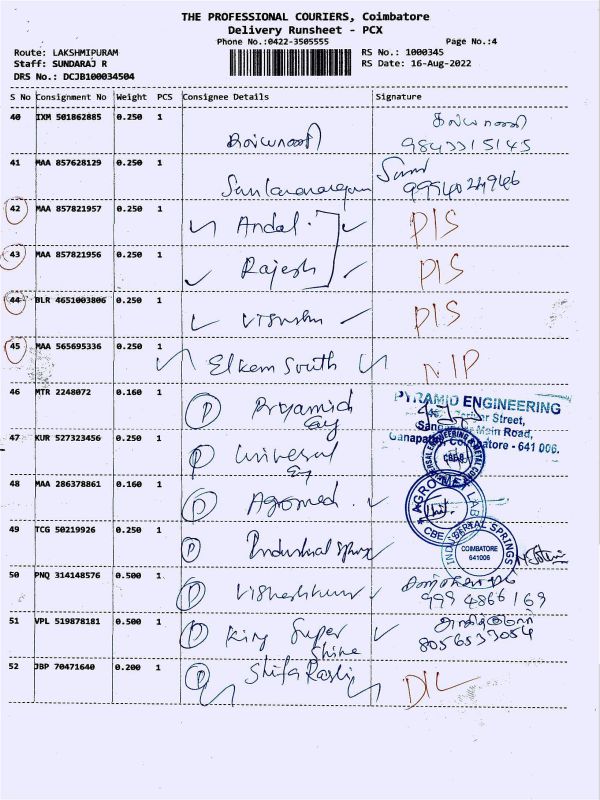 THE PROFESSIONAL COURIERS, Coimbatore
Delivery Runsheet - PCX
Phone No.:0422-3505555 Page No.:4
Route: LAKSHMIPURAM RS No.: 1000345
Staff: SUNDARAJ R RS Date: 16-Aug-2022
DRS No.: DCJB100034504
S No Consignment No Weight PCS Consignee Details Signature
40 IXM 501862885 0.250 1
9843315145
41 MAA 857628129 0.250 1
42 MAA 857821957 0.250 1 Andal. PIS
43 MAA 857821956 0.250 1 Rajesh PIS
44 BLR 4651003806 0.250 1 PIS
45 MAA 565695336 0.250 1 Elkem South NIP
46 MTR 2248072 0.160 1 P Pryamid
Eng
PYRAMID ENGINEERING
Street,
Main Road,
Ganapathy, Coimbatore - 641 006.
47 KUR 527323456 0.250 1 P Universal
Eng
48 MAA 286378861 0.160 1 P Agromed.
AGROMED LAB
CBE
49 TCG 50219926 0.250 1 P Industrial
INDUSTRIAL SPRINGS
COIMBATORE
641006
50 PNQ 314148576 0.500 1 P
999 4866169
51 VPL 519878181 0.500 1 P King Super
Shine
8056533054
52 JBP 70471640 0.200 1 P DIL